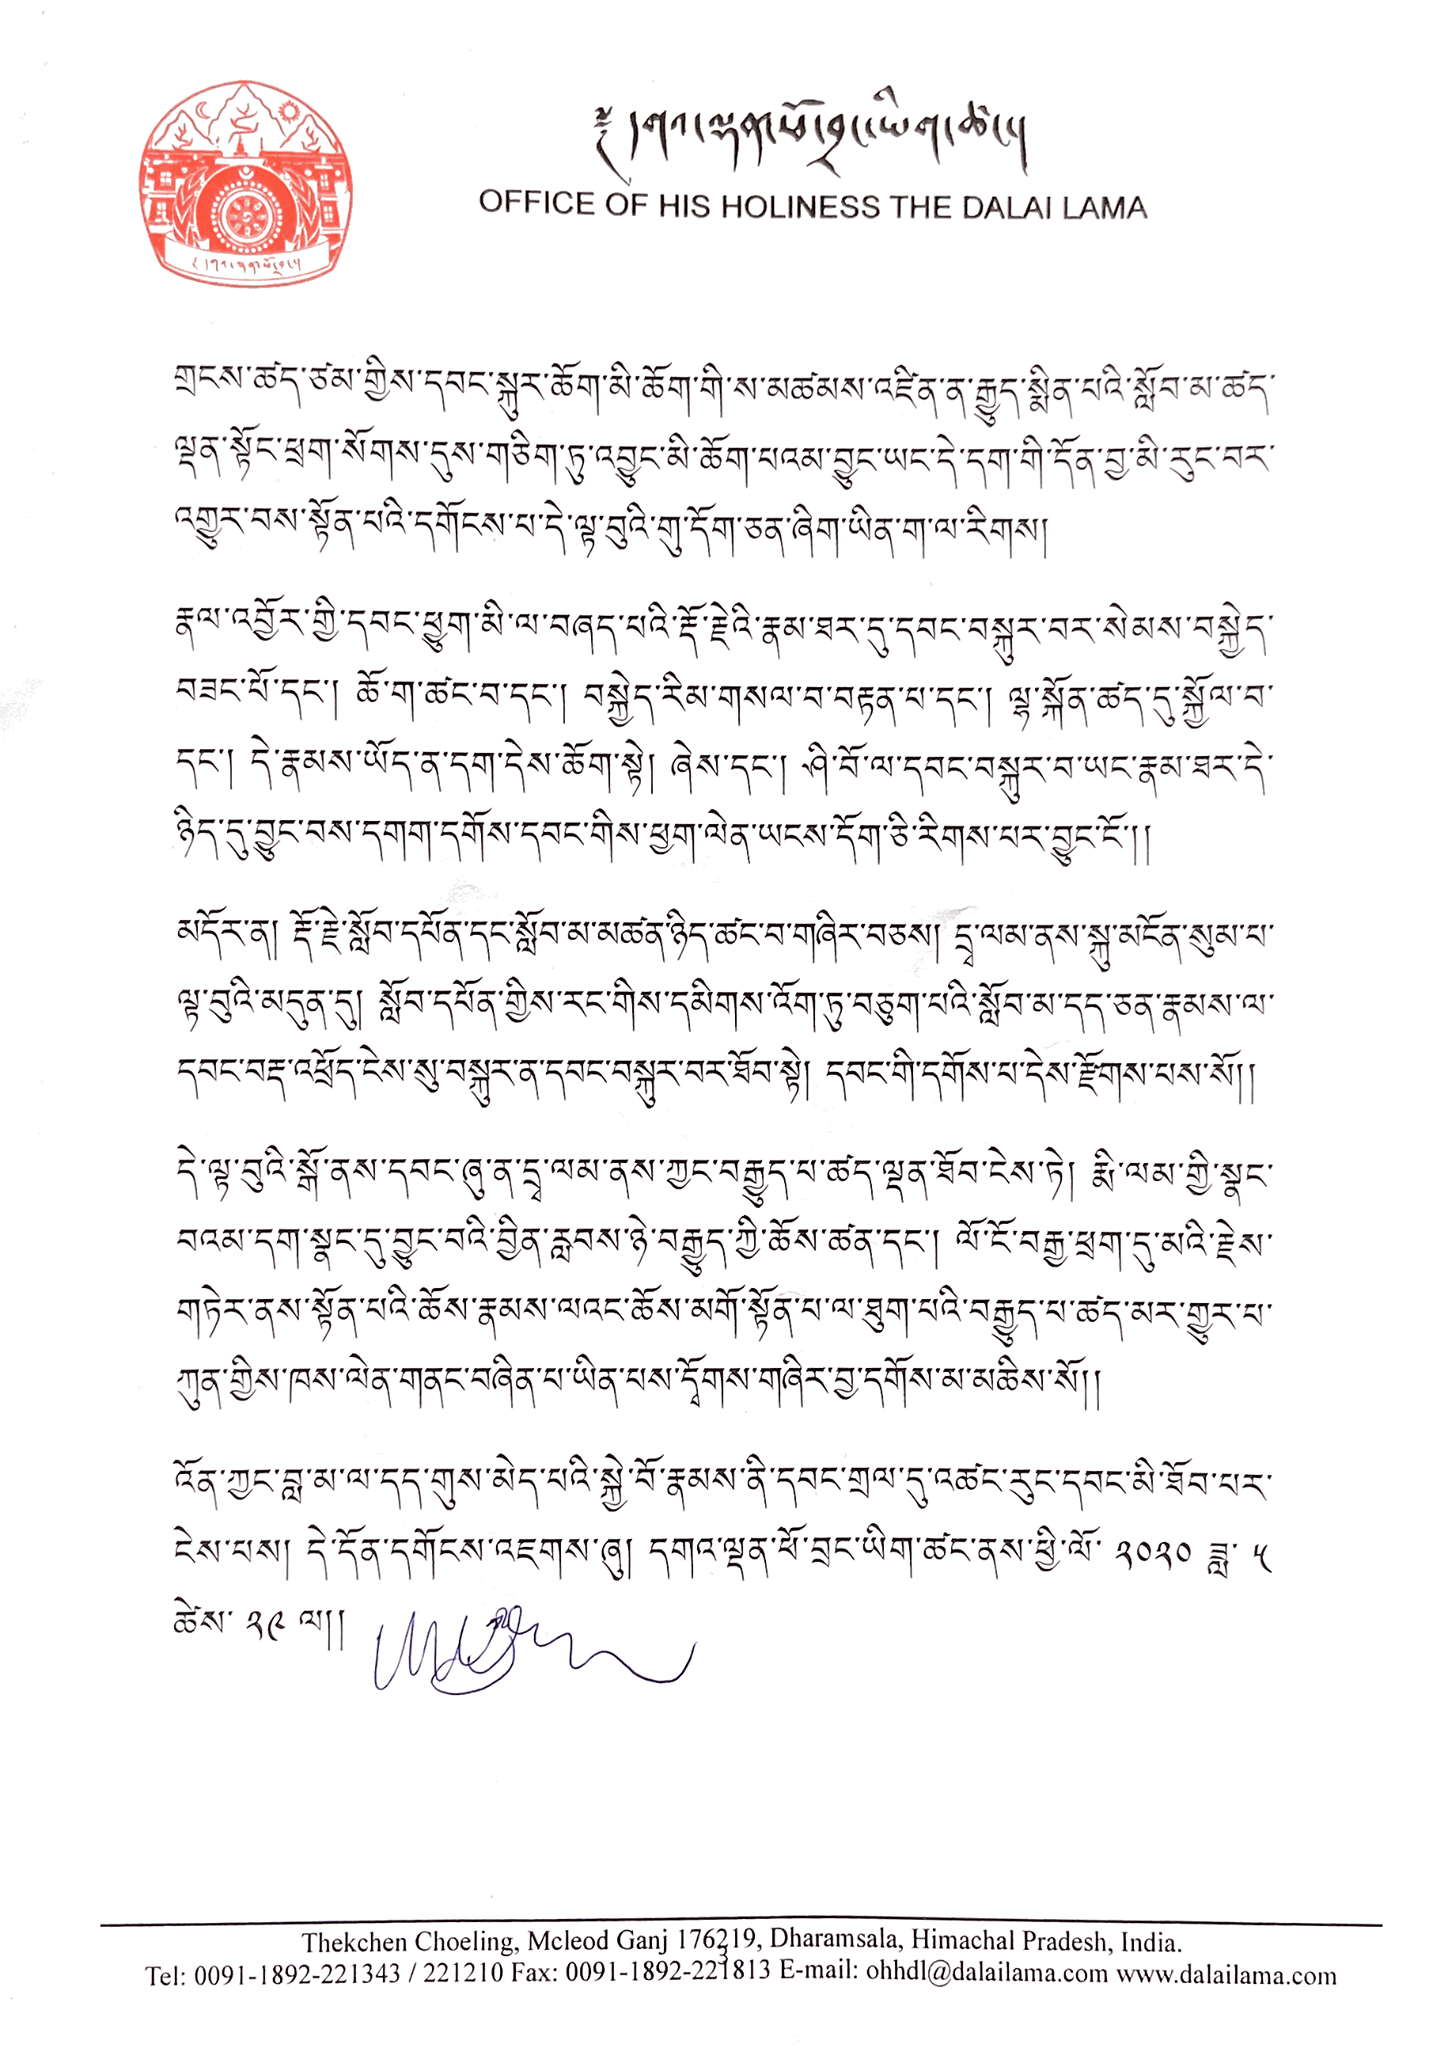 ༄ །དགའ་ལྡན་ཕོ་བྲང་ཡིག་ཚང་།
OFFICE OF HIS HOLINESS THE DALAI LAMA
གྲངས་ཚད་ཙམ་གྱིས་དབང་སྐུར་ཆོག་མི་ཆོག་གི་ས་མཚམས་འཛིན་ན་རྒྱུད་སྨིན་པའི་སློབ་མ་ཚད་
ལྡན་སྟོང་ཕྲག་སོགས་དུས་གཅིག་ཏུ་འབྱུང་མི་ཆོག་པའམ་བྱུང་ཡང་དེ་དག་གི་དོན་བྱ་མི་རུང་བར་
འགྱུར་བས་སྟོན་པའི་དགོངས་པ་དེ་ལྟ་བུའི་གུ་དོག་ཅན་ཞིག་ཡིན་ག་ལ་རིགས།
རྣལ་འབྱོར་གྱི་དབང་ཕྱུག་མི་ལ་བཞད་པའི་རྡོ་རྗེའི་རྣམ་ཐར་དུ་དབང་བསྐུར་བར་སེམས་བསྐྱེད་
བཟང་པོ་དང་། ཆོ་ག་ཚང་བ་དང་། བསྐྱེད་རིམ་གསལ་བ་བརྟན་པ་དང་། ལྷ་སྐོན་ཚད་དུ་སྐྱོལ་བ་
དང་། དེ་རྣམས་ཡོད་ན་དག་དེས་ཆོག་སྟེ། ཞེས་དང་། ཤི་བོ་ལ་དབང་བསྐུར་བ་ཡང་རྣམ་ཐར་དེ་
ཉིད་དུ་བྱུང་བས་དགག་དགོས་དབང་གིས་ཕྱག་ལེན་ཡངས་དོག་ཅི་རིགས་པར་བྱུང་ངོ་།།
མདོར་ན། རྡོ་རྗེ་སློབ་དཔོན་དང་སློབ་མ་མཚན་ཉིད་ཚང་བ་གཞིར་བཅས། དྲྭ་ལམ་ནས་སྐུ་མངོན་སུམ་པ་
ལྟ་བུའི་མདུན་དུ། སློབ་དཔོན་གྱིས་རང་གིས་དམིགས་འོག་ཏུ་བཅུག་པའི་སློབ་མ་དད་ཅན་རྣམས་ལ་
དབང་བརྡ་འཕྲོད་ངེས་སུ་བསྐུར་ན་དབང་བསྐུར་བར་ཐོབ་སྟེ། དབང་གི་དགོས་པ་དེས་རྫོགས་པས་སོ།།
དེ་ལྟ་བུའི་སྒོ་ནས་དབང་ཞུ་ན་དྲྭ་ལམ་ནས་ཀྱང་བརྒྱུད་པ་ཚད་ལྡན་ཐོབ་ངེས་ཏེ། རྨི་ལམ་གྱི་སྣང་
བའམ་དག་སྣང་དུ་བྱུང་བའི་བྱིན་རླབས་ཉེ་བརྒྱུད་ཀྱི་ཆོས་ཚན་དང་། ལོ་ངོ་བརྒྱ་ཕྲག་དུ་མའི་རྗེས་
གཏེར་ནས་སྟོན་པའི་ཆོས་རྣམས་ལའང་ཆོས་མགོ་སྟོན་པ་ལ་ཐུག་པའི་བརྒྱུད་པ་ཚད་མར་གྱུར་པ་
ཀུན་གྱིས་ཁས་ལེན་གནང་བཞིན་པ་ཡིན་པས་དྭོགས་གཞིར་བྱ་དགོས་མ་མཆིས་སོ།།
འོན་ཀྱང་བླ་མ་ལ་དད་གུས་མེད་པའི་སྐྱེ་བོ་རྣམས་ནི་དབང་གྲལ་དུ་འཚང་རུང་དབང་མི་ཐོབ་པར་
ངེས་པས། དེ་དོན་དགོངས་འཇགས་ཞུ། དགའ་ལྡན་ཕོ་བྲང་ཡིག་ཚང་ནས་ཕྱི་ལོ་ ༢༠༢༠ ཟླ་ ༥
ཚེས་ ༢༩ ལ།།
Thekchen Choeling, Mcleod Ganj 176219, Dharamsala, Himachal Pradesh, India.
Tel: 0091-1892-221343 / 221210 Fax: 0091-1892-221813 E-mail: ohhdl@dalailama.com www.dalailama.com